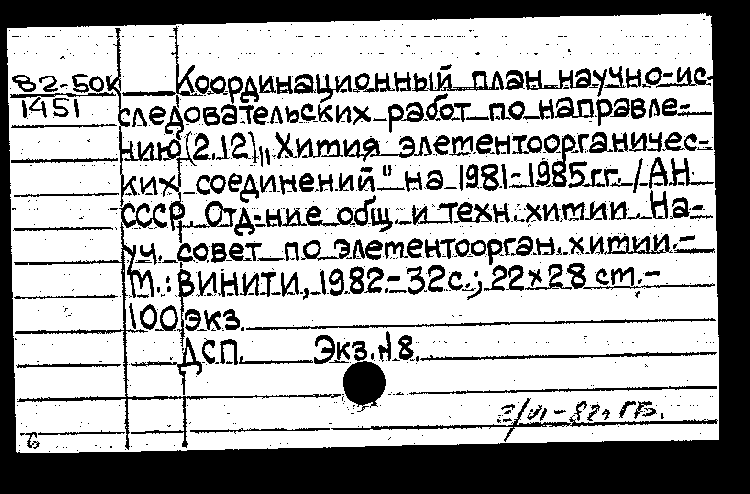 82-5ОК Координационный план научно-ис-
1451 следовательских работ по направле-
нию (2.12) „Химия элементоорганичес-
ких соединений" на 1981-1985 гг. / АН
СССР. Отд-ние общ. и техн. химии. На-
уч. совет по элементоорган. химии.-
М.: ВИНИТИ, 1982.- 32с.; 22х28 см.-
100 экз.
ДСП. Экз.N8.
3/VI-82г. ГБ.
6